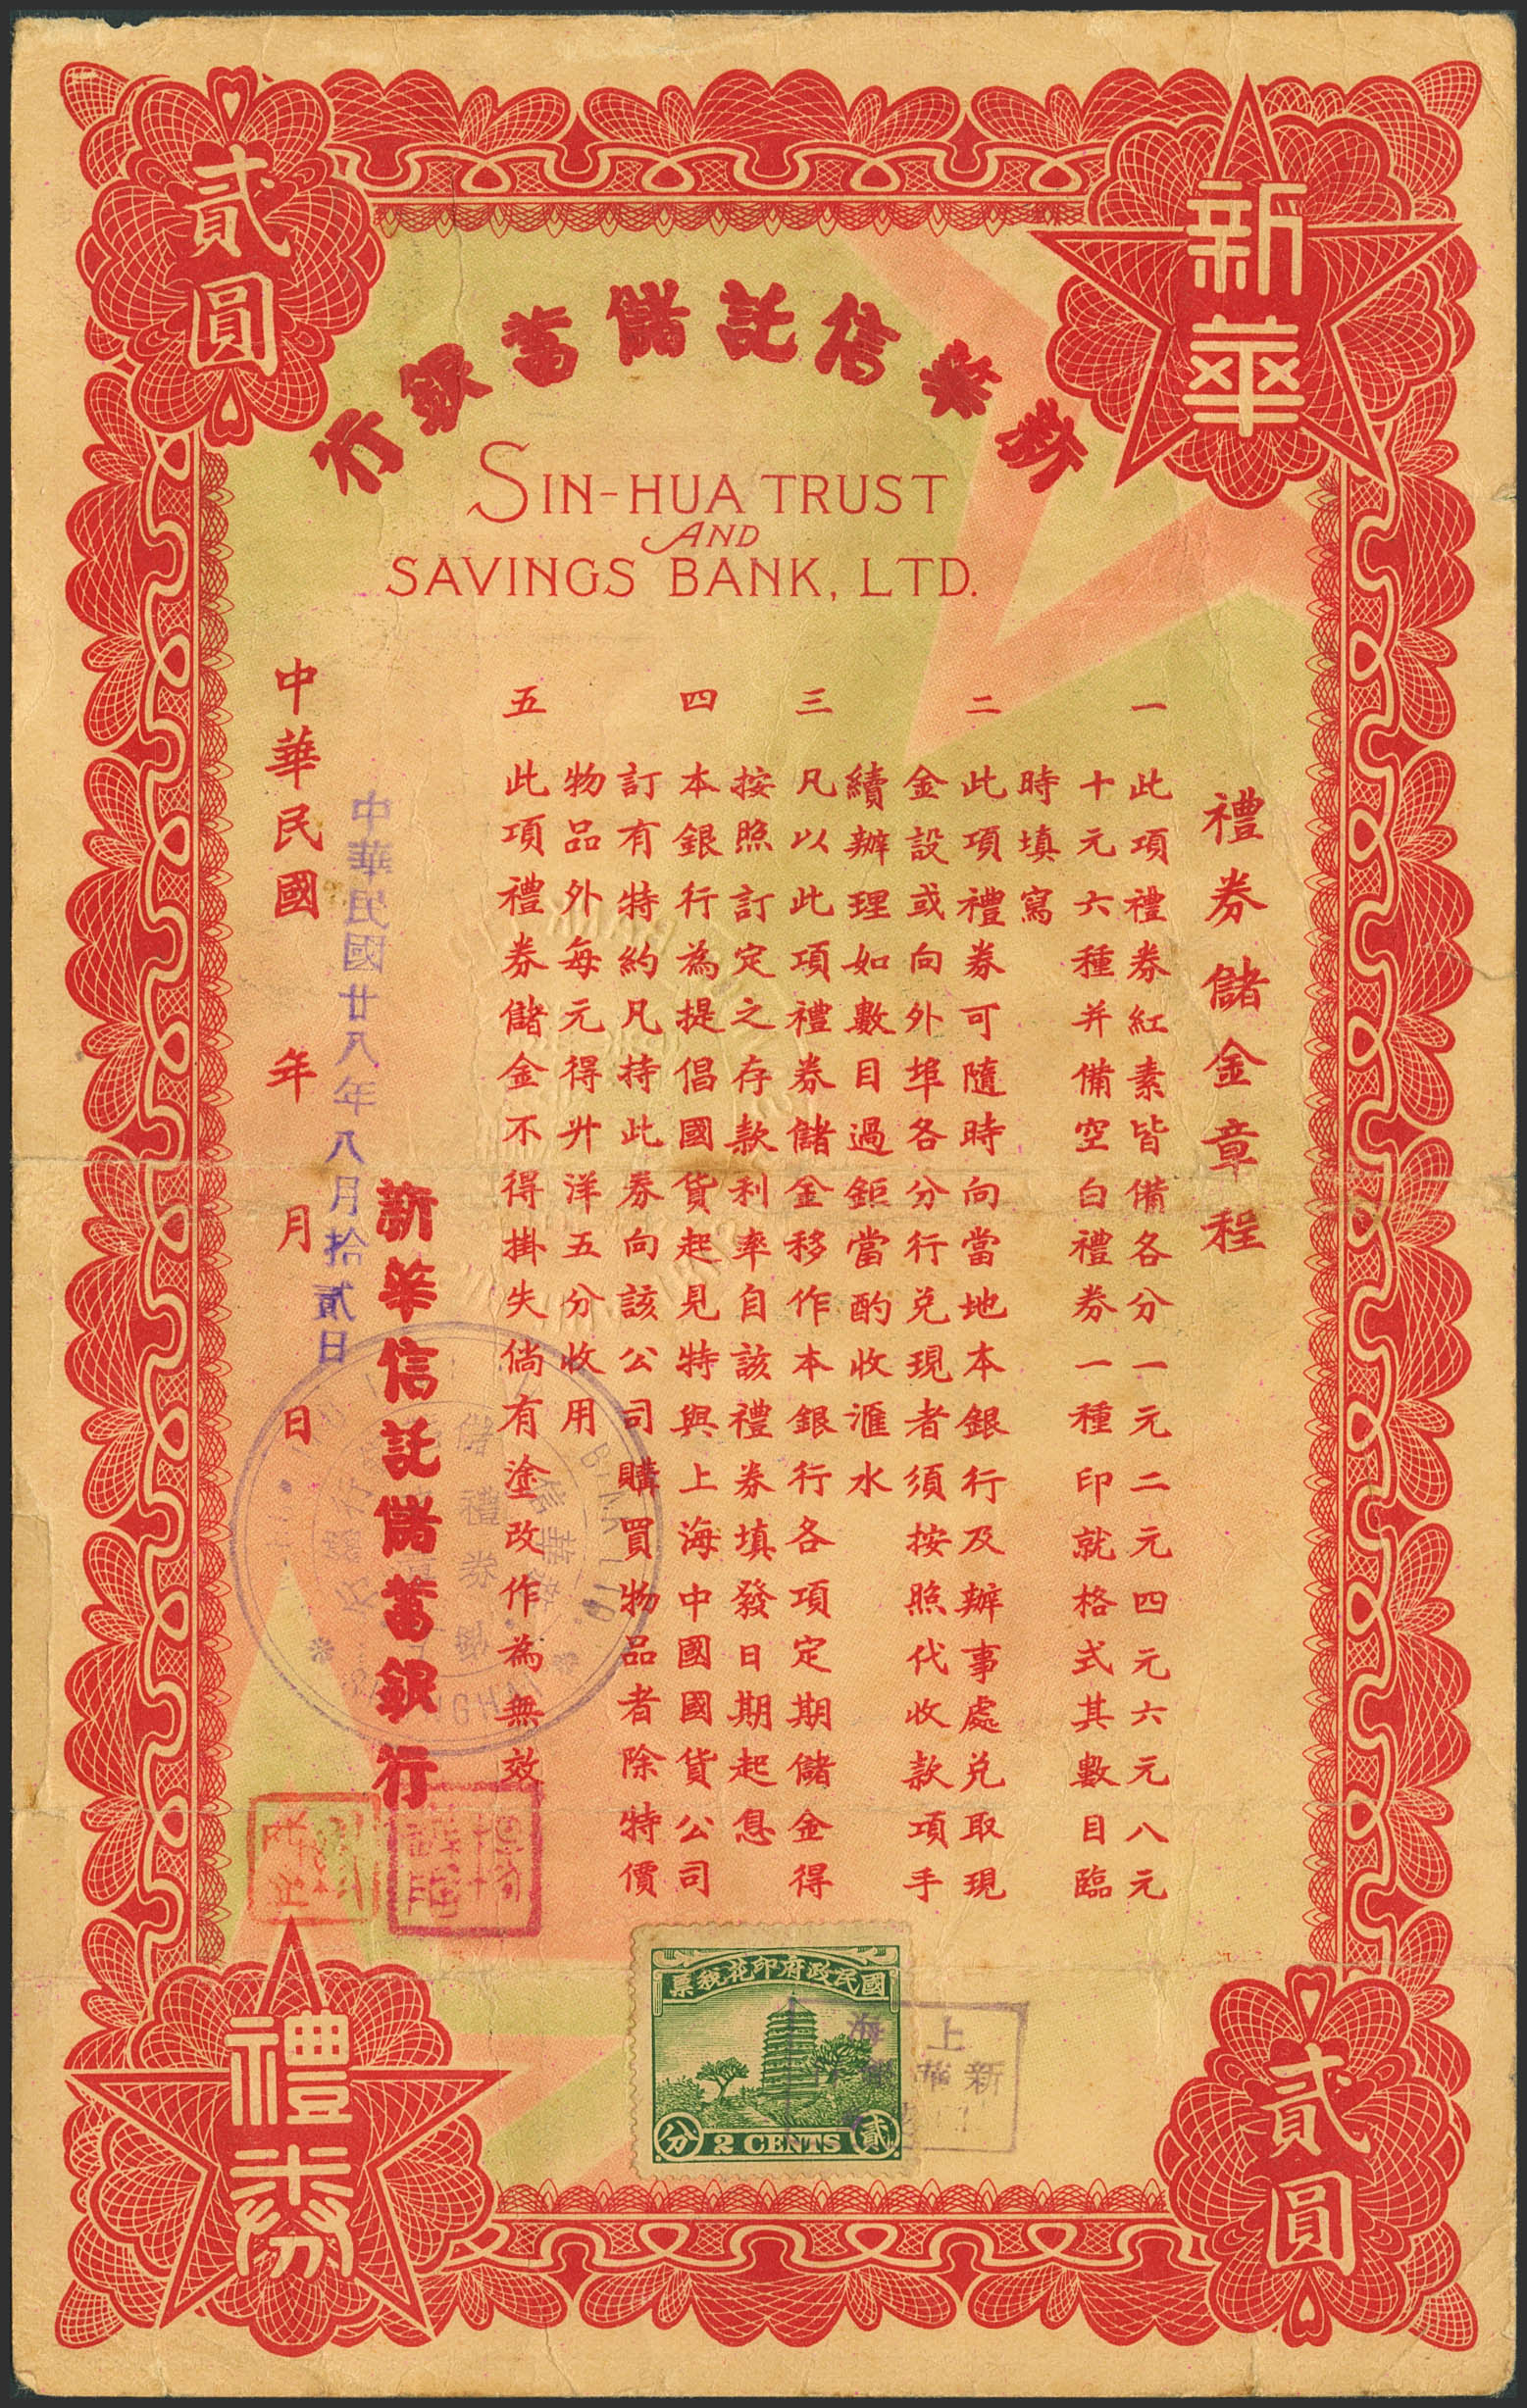 新華
貳圓
新華信託儲蓄銀行
SIN-HUA TRUST
AND
SAVINGS BANK, LTD.
禮券儲金章程
一 此項禮券紅素皆備各分一元二元四元六元八元
十元六種并備空白禮券一種印就格式其數目臨
時填寫
二 此項禮券可隨時向當地本銀行及辦事處兌取現
金設或向外埠各分行兌現者須按照代收款項手
續辦理如數目過鉅當酌收滙水
三 凡以此項禮券儲金移作本銀行各項定期儲金得
按照訂定之存款利率自該禮券填發日期起息
四 本銀行為提倡國貨起見特與上海中國國貨公司
訂有特約凡持此券向該公司購買物品者除特價
物品外每元得升洋五分收用
五 此項禮券儲金不得掛失倘有塗改作為無效
新華信託儲蓄銀行
中華民國廿八年八月拾貳日
中華民國 年 月 日
BANK LTD
儲
禮券
禮券
貳圓
國民政府印花稅票
貳分
2 CENTS
上海
新華